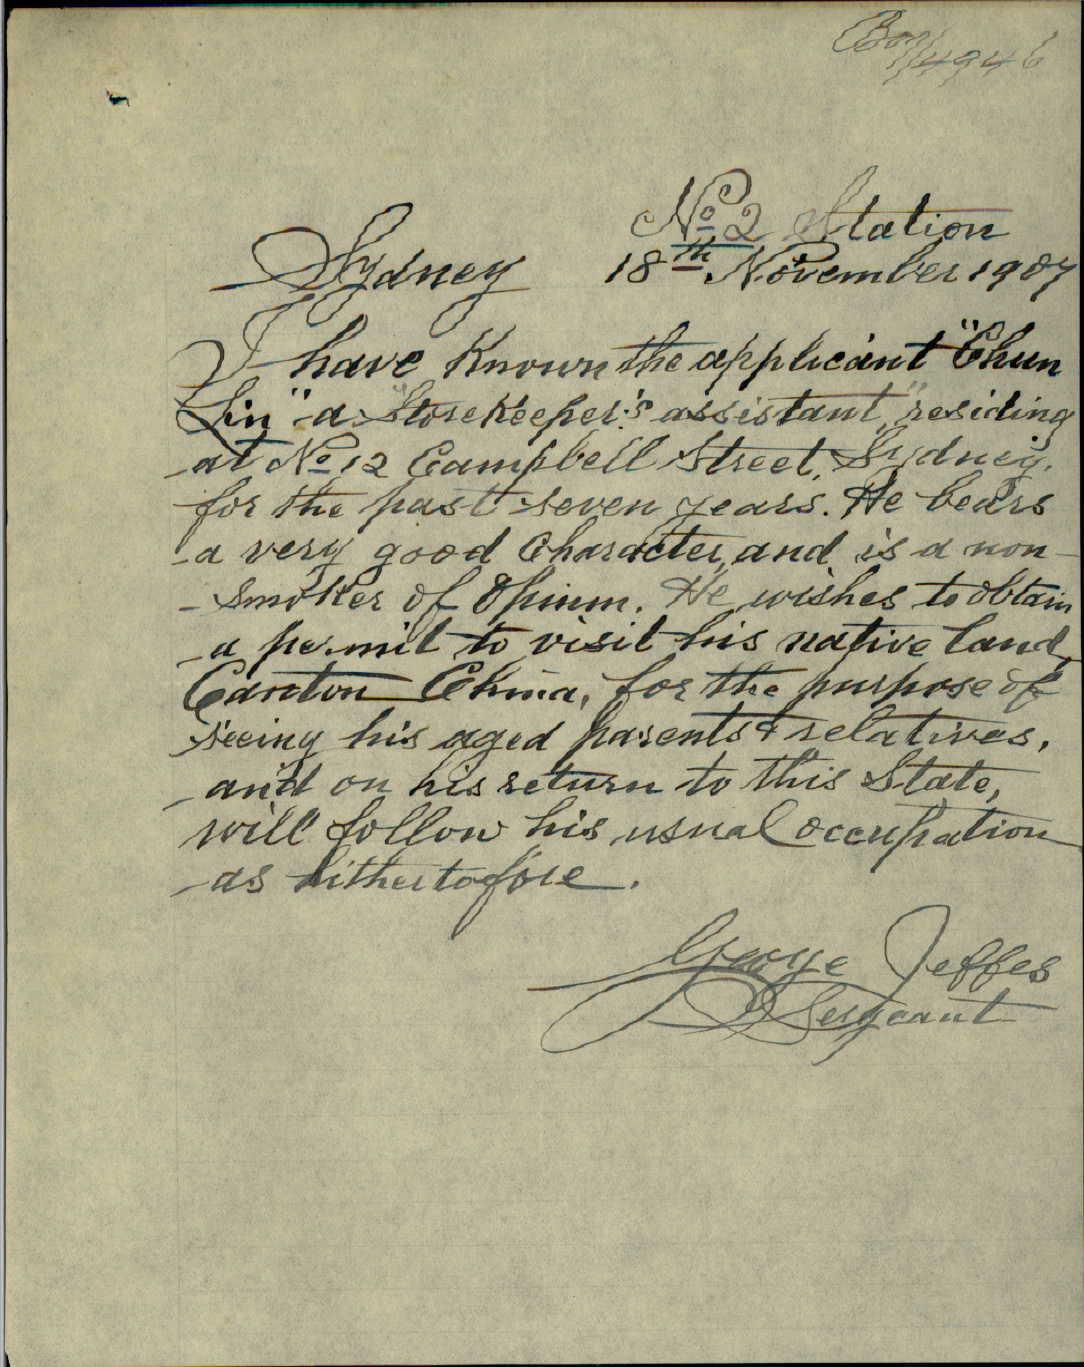 4946
No 2 Station
Sydney 18th November 1907
I have Known the applicant "Chun
Lin" a "Storekeeper's assistant," residing
at No 12 Campbell Street, Sydney,
for the past seven years. He bears
a very good Character, and is a non-
smoker of Opium. He wishes to obtain
a permit to visit his native land,
Canton China, for the purpose of
seeing his aged parents & relatives,
and on his return to this State,
will follow his usual occupation
as hithertofore.
George Jeffes
Sergeant